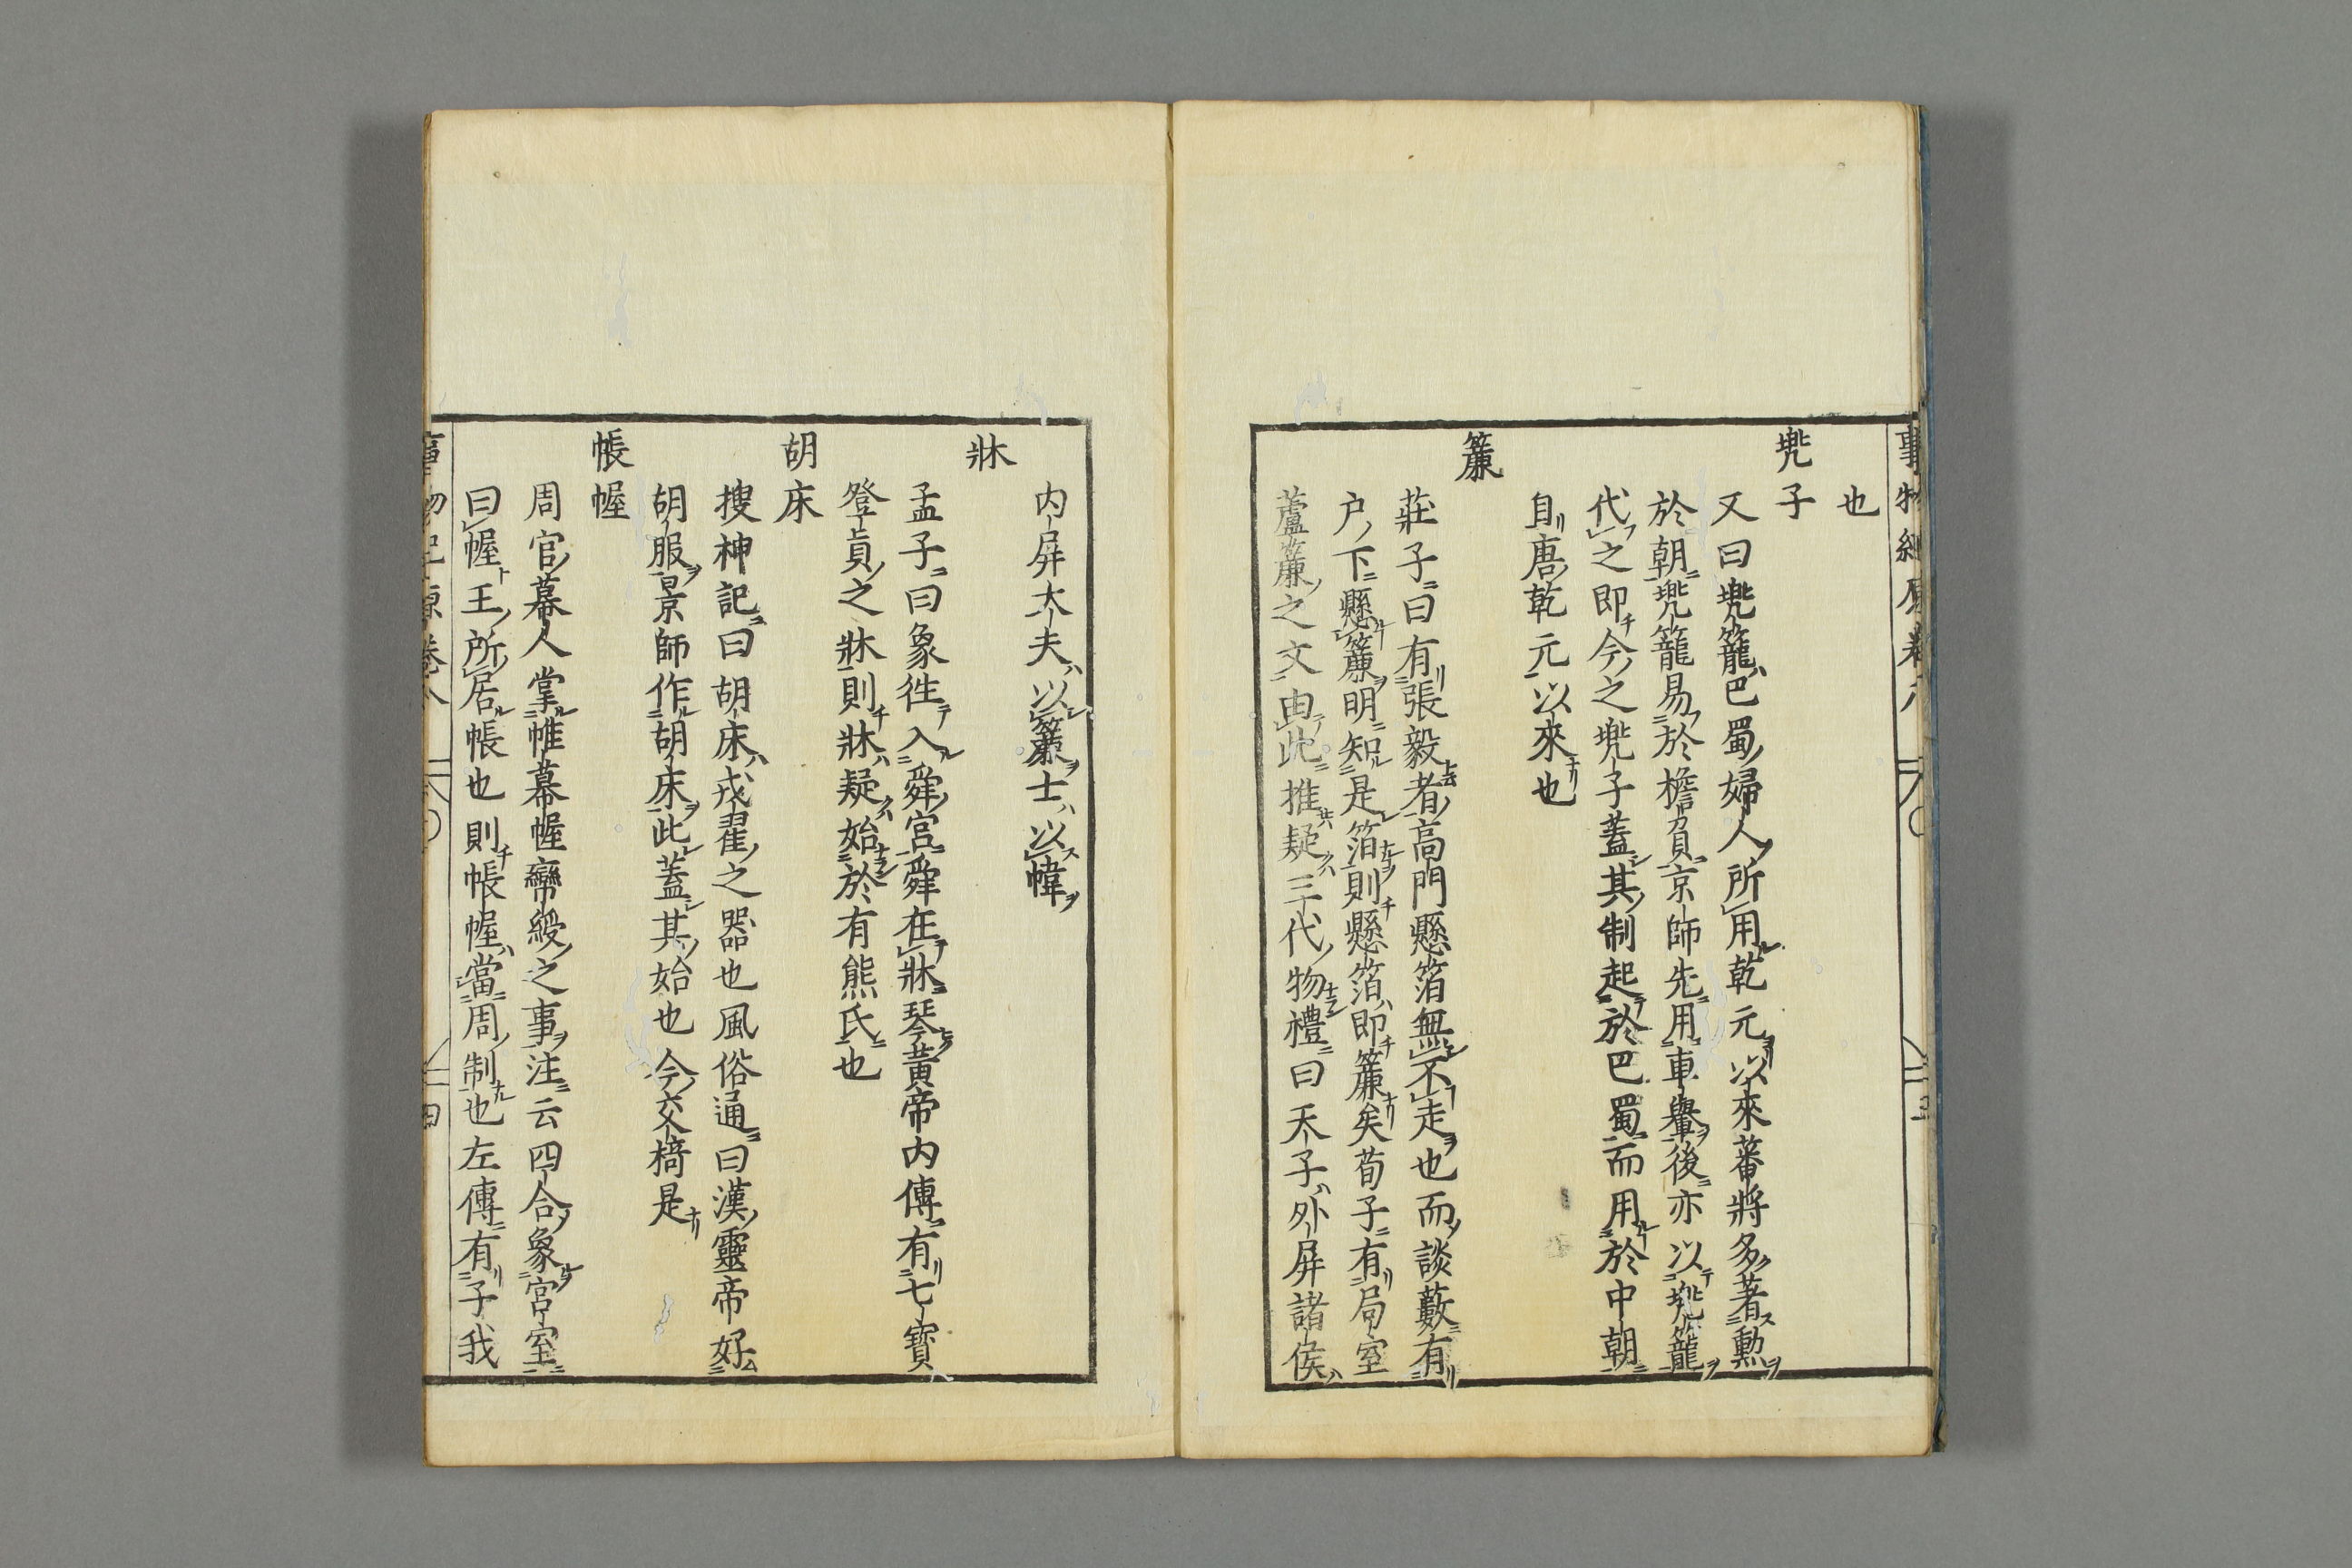 也
兠子
又曰兠籠巴蜀婦人所用乾元以來蕃將多著勲
於朝兠籠易於檐負京師先用車轝後亦以兠籠
代之即今之兠子蓋其制起於巴蜀而用於中朝
自唐乾元以來也
簾
莊子曰有張毅者高門懸箔無不走也而談藪有
户下懸簾明知是箔則懸箔即簾矣荀子有局室
蘆簾之文由此推疑三代物禮曰天子外屏諸侯
内屏大夫以簾士以幃
牀
孟子曰象徃入舜宫舜在牀琴黄帝内傳有七寳
登真之牀則牀疑始於有熊氏也
胡床
搜神記曰胡床戎翟之器也風俗通曰漢靈帝好
胡服景師作胡床此蓋其始也今交椅是
帳幄
周官幕人掌帷幕幄帟綬之事注云四合象宫室
曰幄王所居帳也則帳幄當周制也左傳有子我